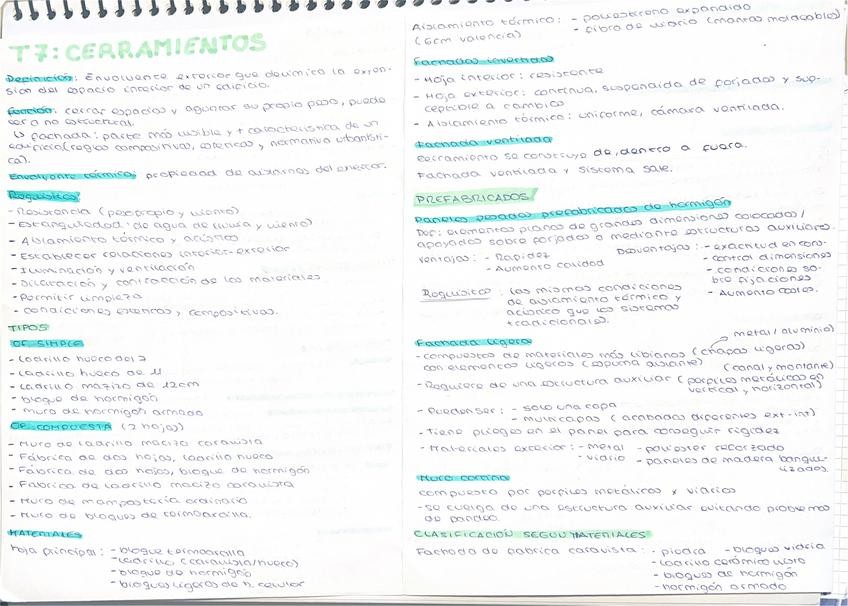 T7: CERRAMIENTOS
Definición: Envolvente exterior que delimita la exten-
sión del espacio interior de un edificio.
Función: cerrar espacios y aguantar su propio peso, puede
ser o no estructural.
↳ fachada: parte más visible y + característica de un
edificio (reglas compositivas, estéticas y normativa urbanísti-
ca).
Envolvente térmica: propiedad de aislarnos del exterior.
Requisitos
- Resistencia (peso propio y viento)
- Estanqueidad: de agua de lluvia y viento)
- Aislamiento térmico y acústico
- Establecer relaciones interior-exterior
- Iluminación y ventilación
- Dilatación y contracción de los materiales
- Permitir limpieza
- Condiciones estéticas y compositivas.
TIPOS
DE SIMPLE
- Ladrillo hueco del 7
- Ladrillo hueco de 11
- Ladrillo macizo de 12cm
- bloque de hormigón
- muro de hormigón armado
DE COMPUESTA (2 hojas)
- Muro de ladrillo macizo caravista
- Fábrica de dos hojas, ladrillo hueco
- Fábrica de dos hojas, bloque de hormigón
- Fábrica de ladrillo macizo caravista
- Muro de mampostería ordinario
- Muro de bloques de termoarcilla.
MATERIALES
hoja principal: - bloque termoarcilla
- ladrillo (caravista/hueco)
- bloque de hormigón
- bloques ligeros de h. celular
Aislamiento térmico: - poliestireno expandido
(6cm valencia) - fibra de vidrio (mantas moldeables)
Fachadas invertidas
- Hoja interior: resistente
- Hoja exterior: continua, suspendida de forjados y sus-
ceptible a cambios
- Aislamiento térmico: uniforme, cámara ventilada.
Fachada ventilada
cerramiento se construye de dentro a fuera.
Fachada ventilada y sistema sate.
PREFABRICADOS
Paneles pesados prefabricados de hormigón
Def: elementos planos de grandes dimensiones colocados/
apoyados sobre forjados o mediante estructuras auxiliares.
Ventajas: - Rapidez
- Aumento calidad
Desventajas: - exactitud en cons-
- control dimensiones
- condiciones so-
bre fijaciones
- Aumento costes.
Requisitos: las mismas condiciones
de aislamiento térmico y
acústico que los sistemas
tradicionales.
Fachada ligera
metal/aluminio)
- compuestos de materiales más livianos (chapas ligeras)
con elementos ligeros (espuma aislante)
(canal y montante)
- Requiere de una estructura auxiliar (perfiles metálicos en
vertical y horizontal)
- Pueden ser: - solo una capa
- multicapas (acabados diferentes ext-int)
- Tiene pliegos en el panel para conseguir rigidez
- Materiales exterior: - metal - poliester reforzado
- vidrio - paneles de madera
Muro cortina
compuesto por perfiles metálicos y vidrios
- se cuelga de una estructura auxiliar evitando problemas
de pandeo.
CLASIFICACIÓN SEGÚN MATERIALES
Fachada de fabrica caravista: - piedra - bloques vidrio
- ladrillo cerámico visto
- bloques de hormigón
- hormigón armado